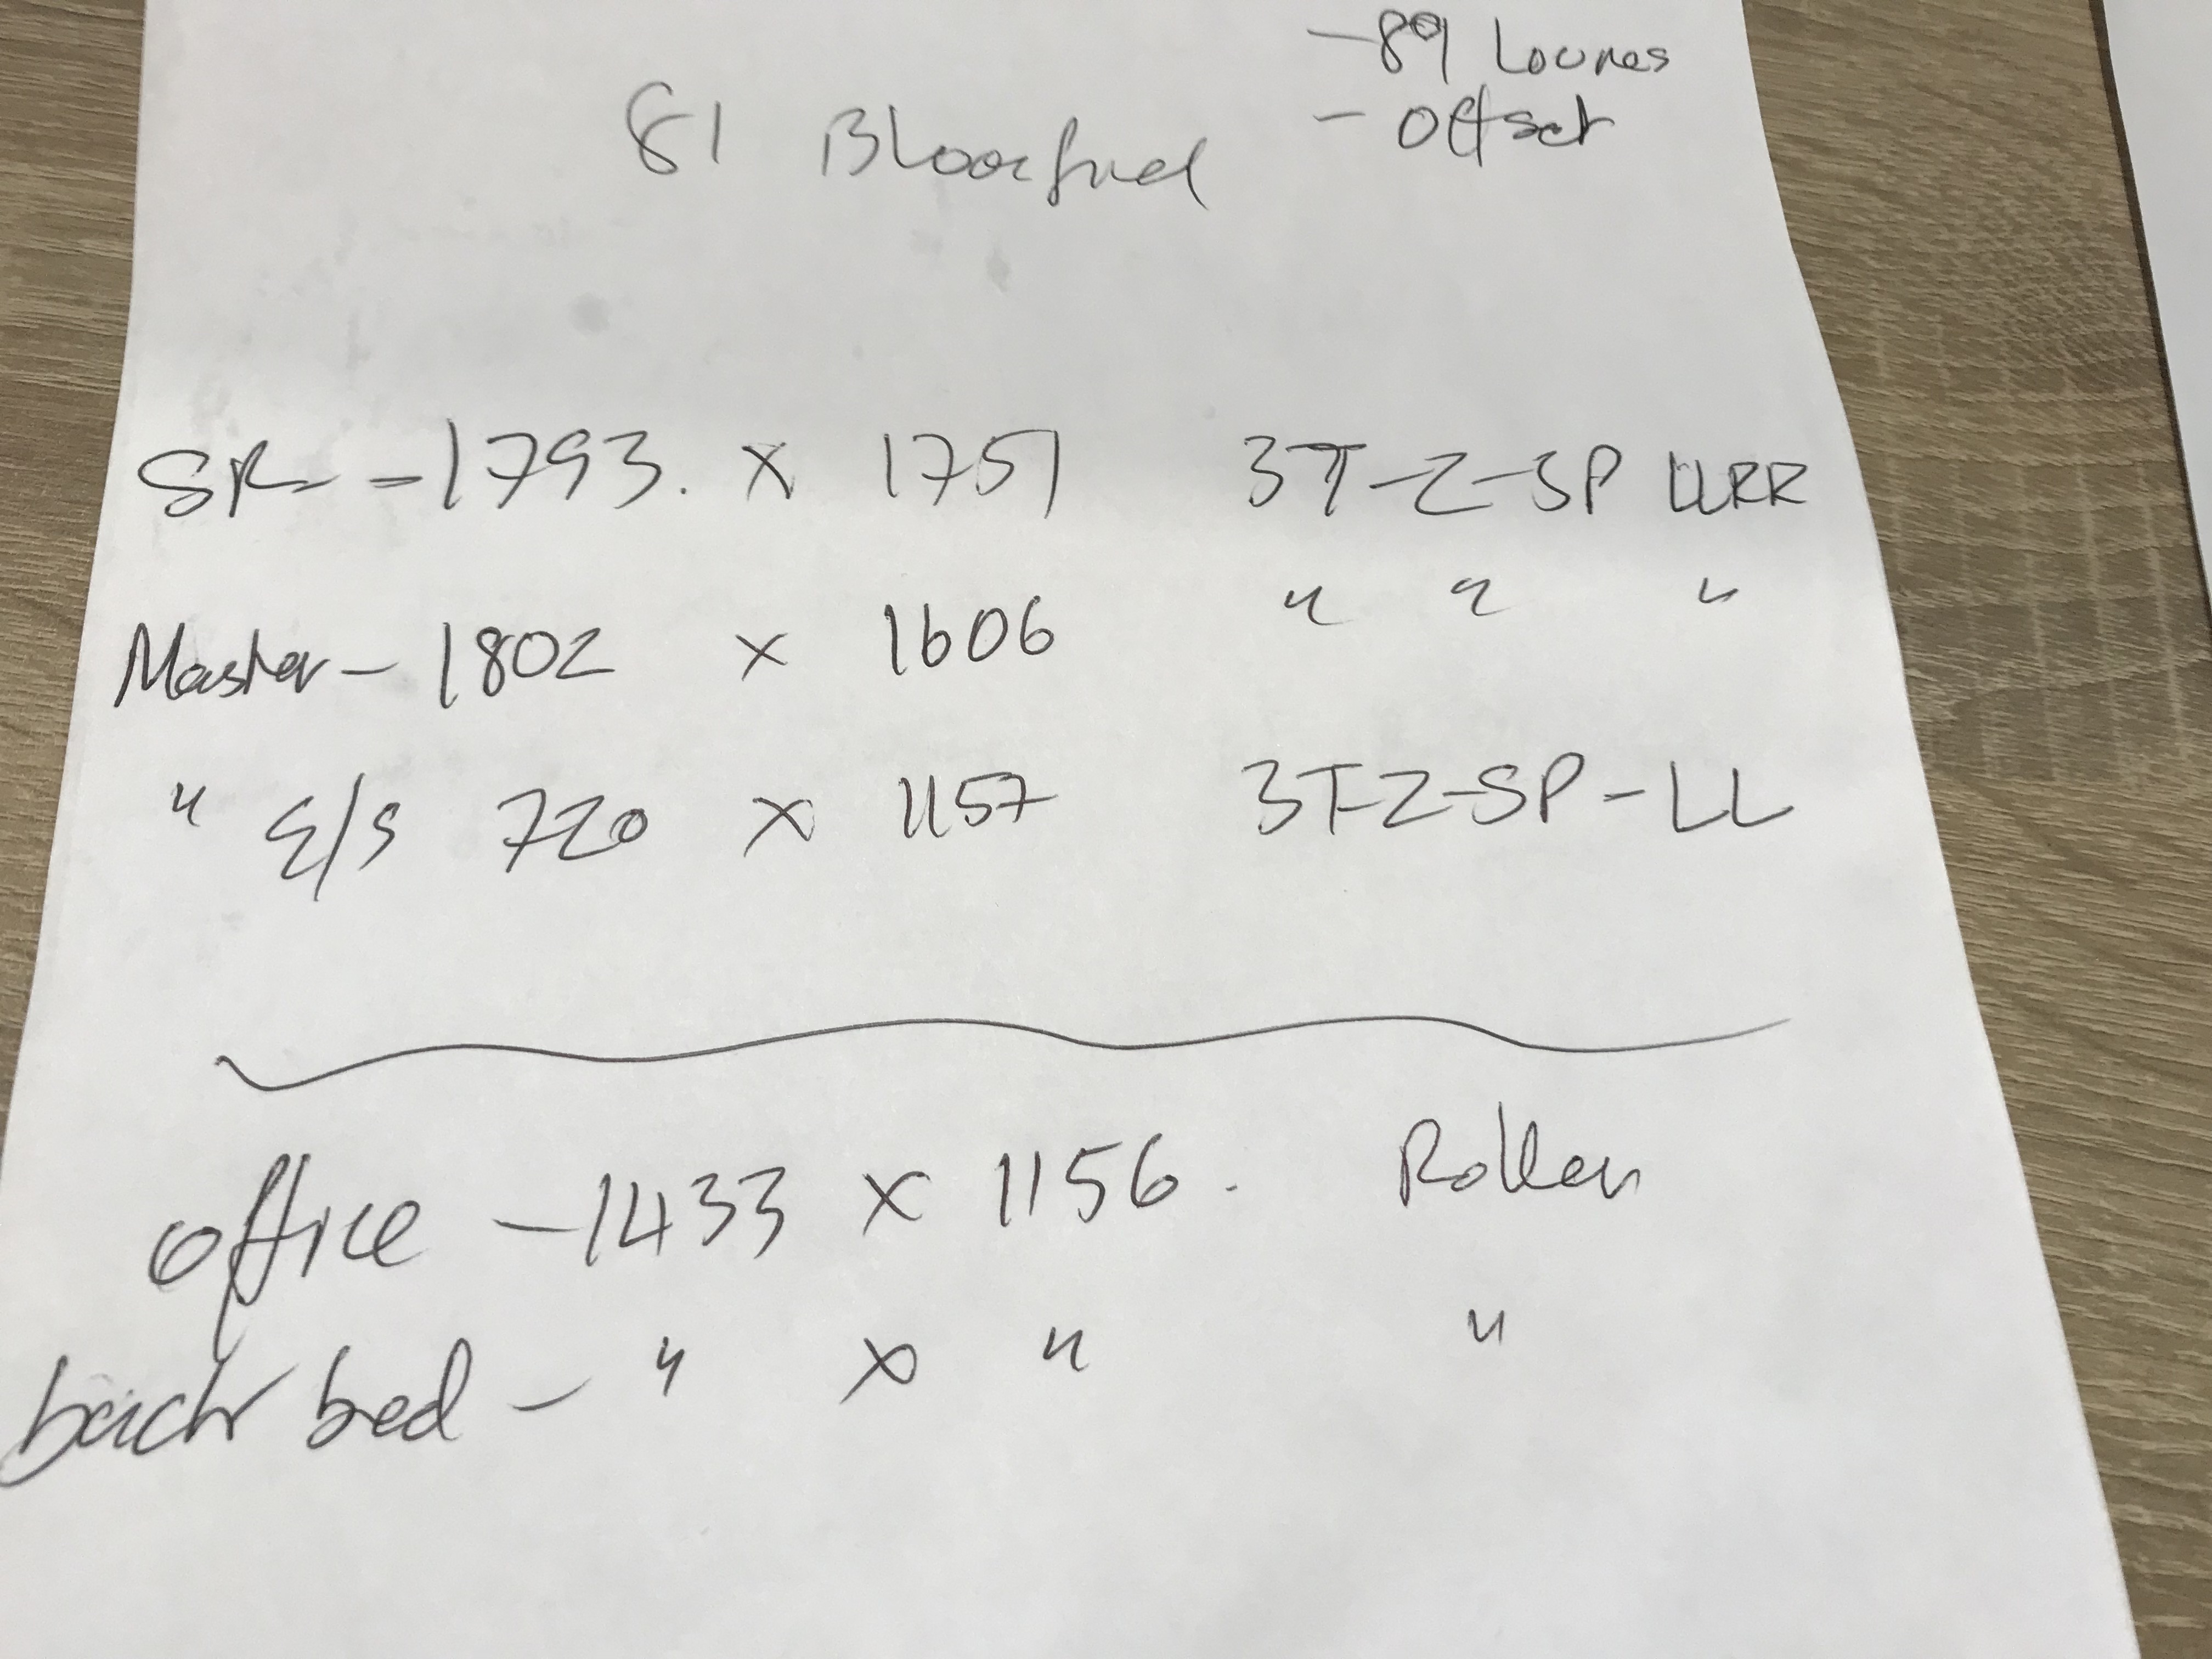 - 89 Louvres
- Offset
81 Bloomfield
SR - 1793. x 1751 3T-Z-SP LLRR
Master - 1802 x 1606 " " "
" E/S 720 x 1157 3T-Z-SP-LL
office - 1433 x 1156. Roller
back bed - " x " "